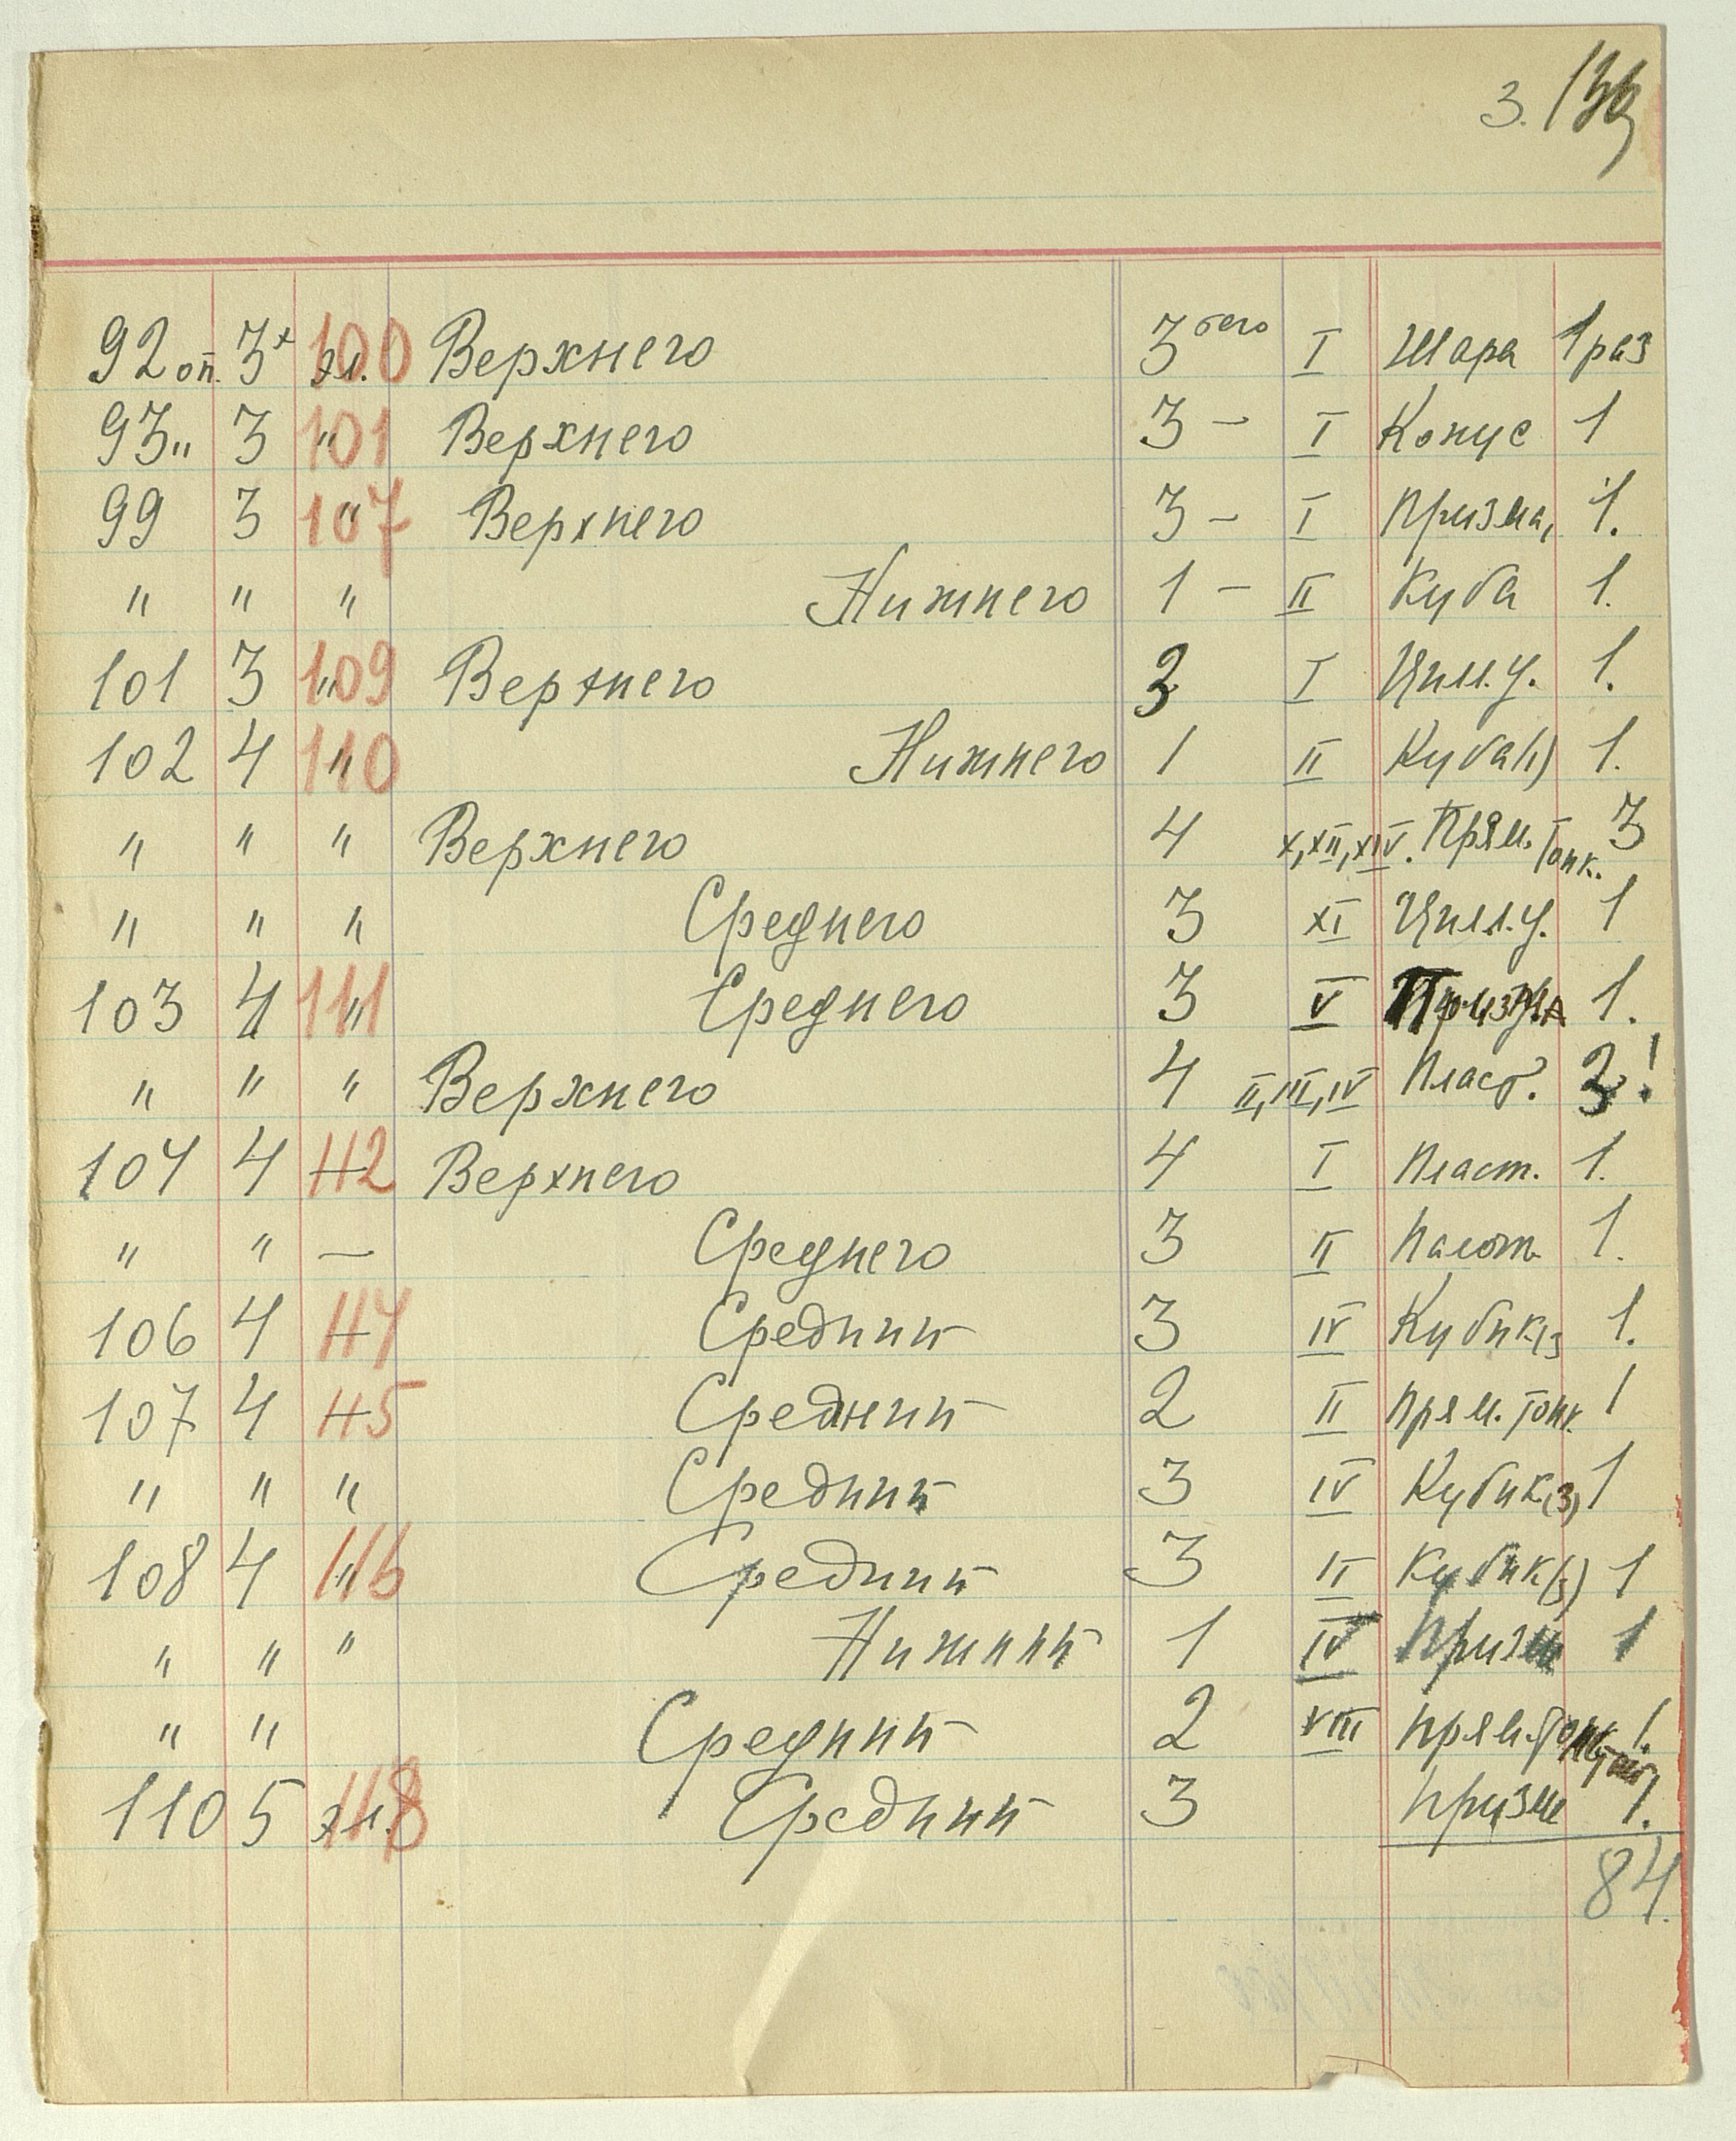 3. 139
92 оп. 3х эл. 100 Верхнего 3 его I Шара 1 раз
93 " 3 " 101 Верхнего 3 – I Конус 1
99 3 " 107 Верхнего 3 – I Призма, 1.
" " " Нижнего 1 – II Куба 1.
101 3 " 109 Верхнего 3 I Цил.у. 1.
102 4 " 110 Нижнего 1 II Куба(1) 1.
" " " Верхнего 4 X, XII, XIV. Прям. Тонк. 3
" " " Среднего 3 XI Цил.у. 1
103 4 " 111 Среднего 3 V Призма 1.
" " " Верхнего 4 II, III, IV Пласт. 3!
104 4 – 112 Верхнего 4 I Пласт. 1.
" " — Среднего 3 II 1.
106 4 – 114 Средний 3 IV Кубик(3 1.
107 4 – 115 Средний 2 II Прям. Тонк. 1
" " " Средний 3 IV Кубик(3) 1
108 4 " 116 Средний 3 II Кубик(3) 1
" " " Нижний 1 IV Призм 1
" " Средний 2 XVIII Прям. Тонк 1.
110 5 эл. 118 Средний 3 Призм 1.
84.